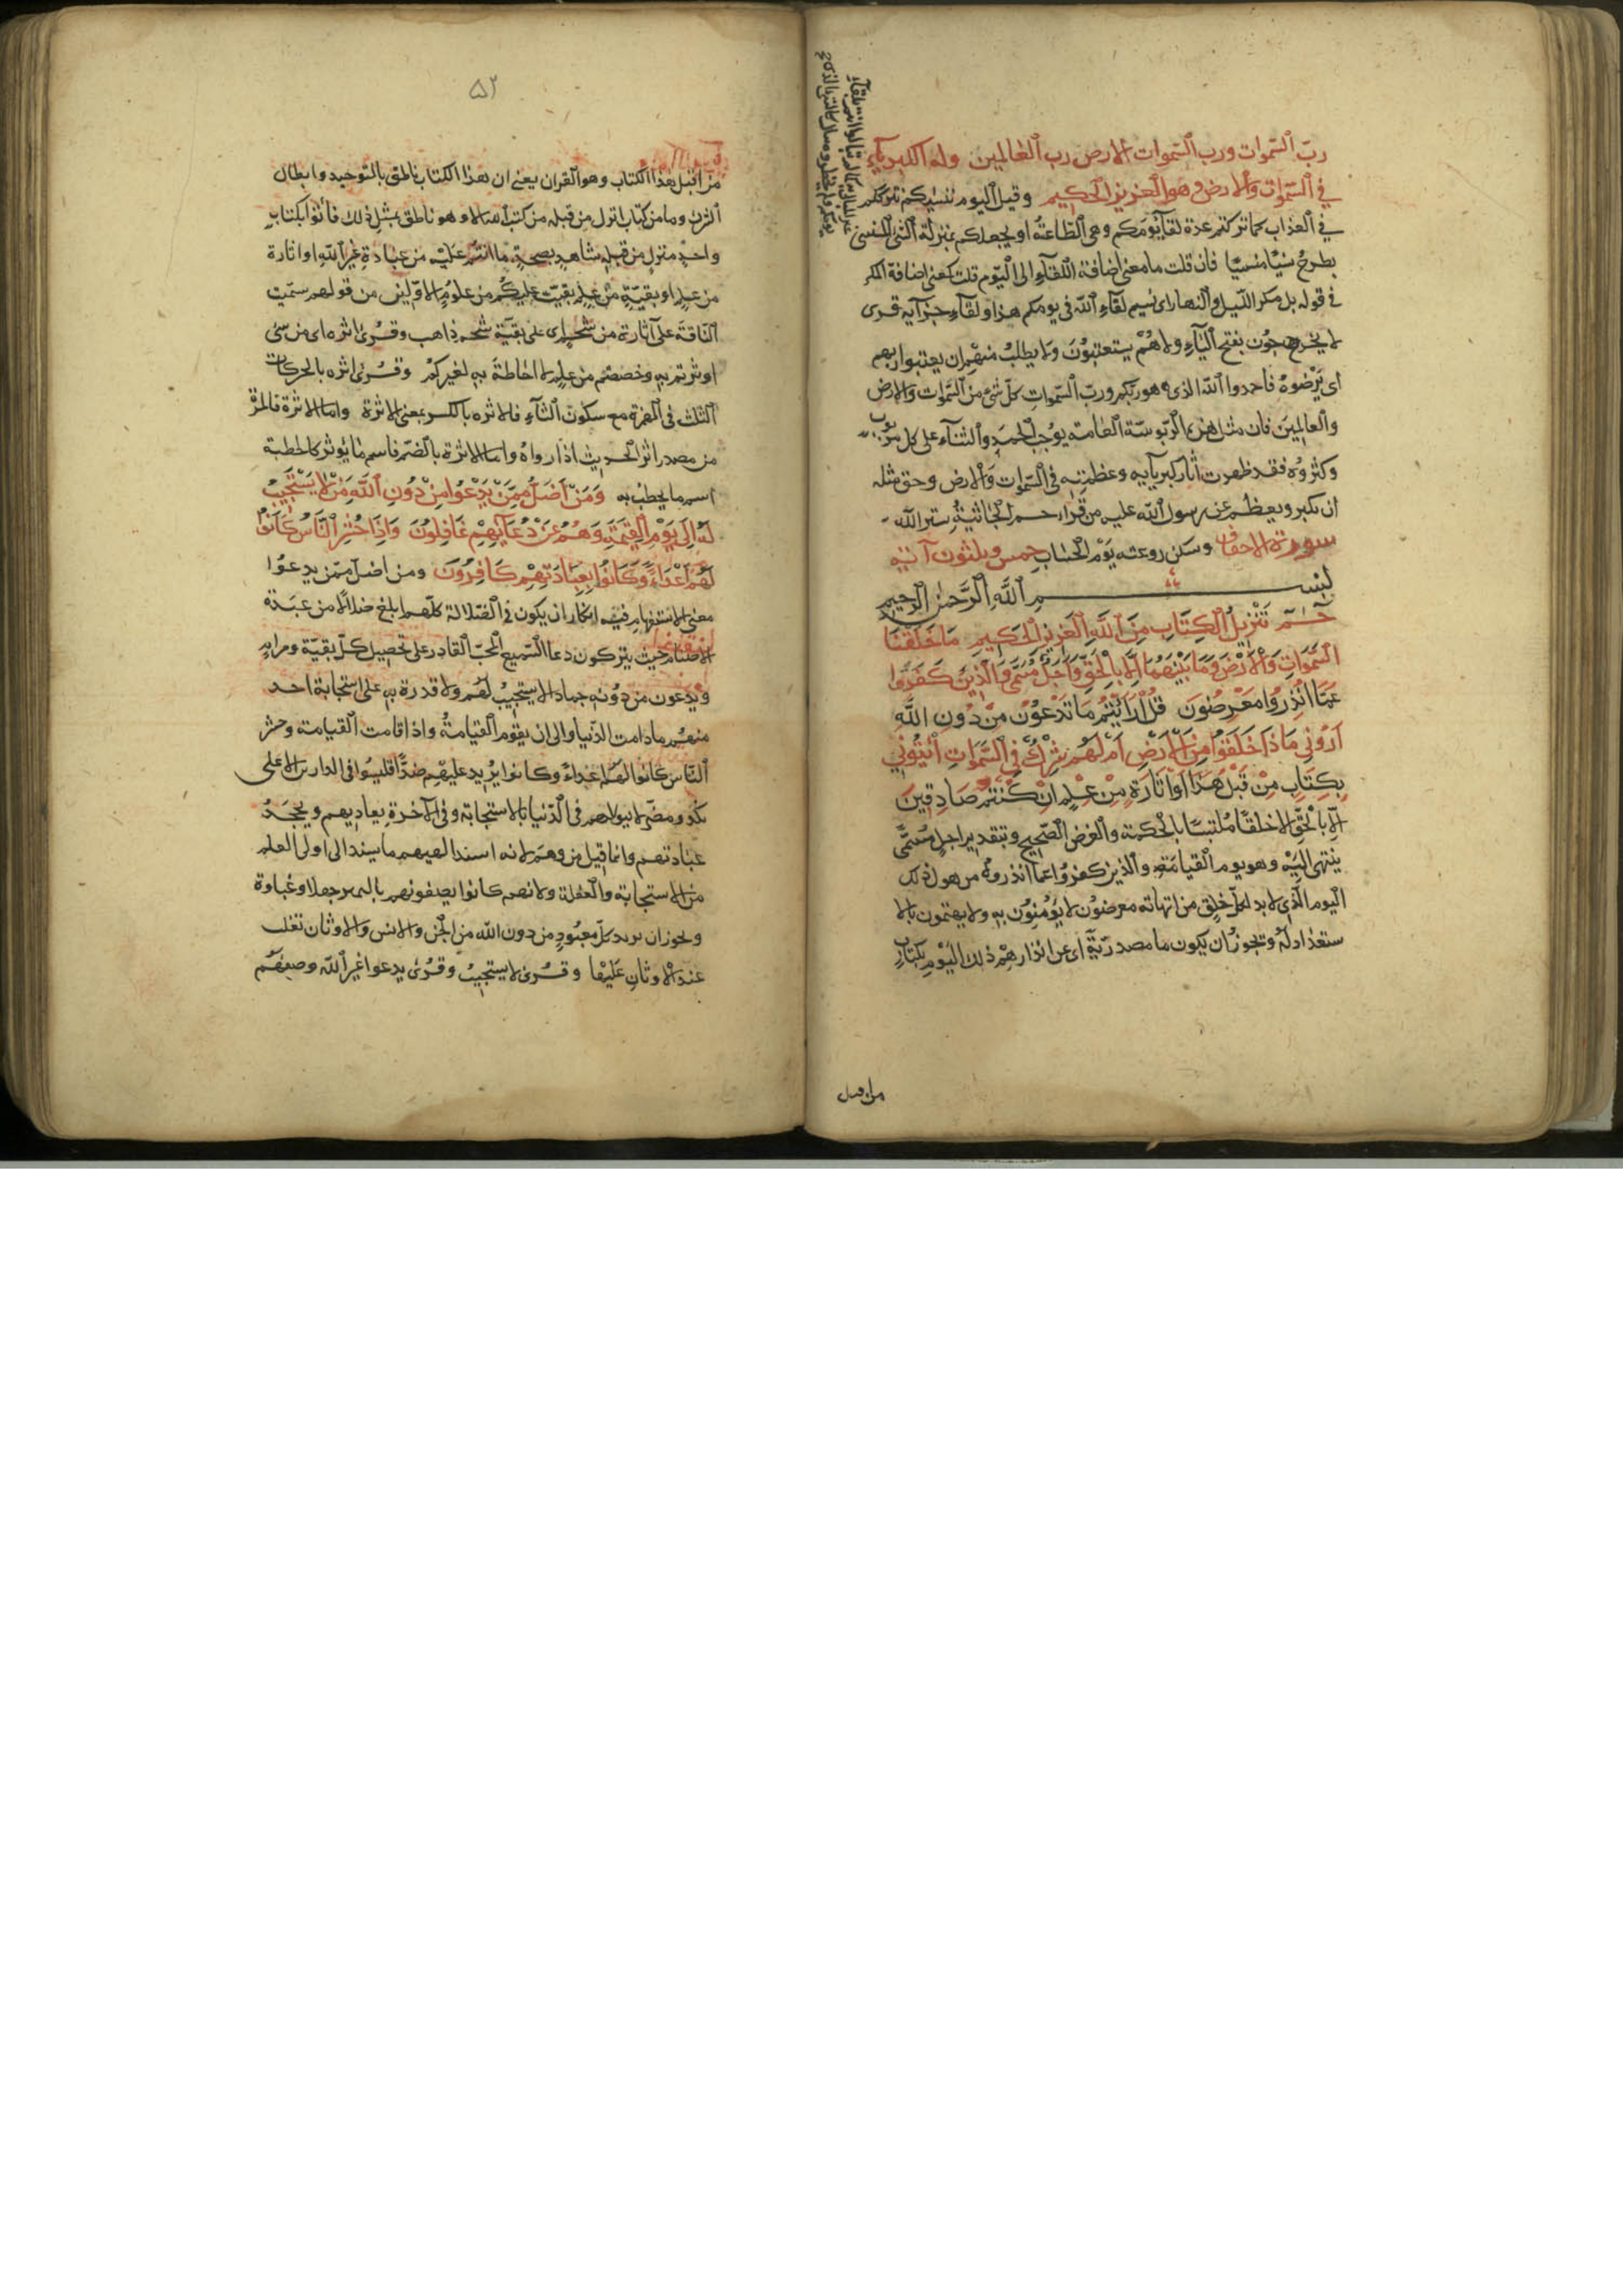 ربّ السّموات ورب السّموات الارض رب العالمين وله الكبرياء
في السّموات والارض وهو العزيز الحكيم وقيل اليوم ننسيكم نترككم
في العذاب كما تركتم عدة لقاء يومكم وهى الطاعة او يجعلكم بمنزلة الشئ المنسى
يطرح نسيًا منسيّا فان قلت ما معنى اضافة اللقاء الى اليوم قلت كمعنى اضافة المكر
في قوله بل مكر الليل والنهار اى نسيتم لقاء الله في يومكم هذا ولقاء جزآيه قرى
لا يخرجون بفتح الياء ولاهم يستعتبون ولا يطلب منهم ان يعتبوا ربهم
اى يرضوه فاحمدوا الله الذى هو ربكم وربّ السّموات كلّ شئ من السّموات والارض
والعالمين فان مثل هذه الربوبيّة العامة يوجب الحمد والثناء على كل مربوب
وكبّروه فقد ظهرت آثار كبريآيه وعظمته في السّموات والارض وحق مثله
ان يكبر ويعظم عن رسول الله عليه من قرا حم الجاثية ستر الله
سورة الاحقاف وسكن روعته يوم الحساب خمس وثلثون آية
بسم الله الرّحمن الرّحيم
حٓم تنزيل الكتاب من الله العزيز الحكيم ما خلقنا
السّموات والارض وما بينهما الّا بالحقّ واجل مسمّى والّذين كفروا
عمّا انذروا معرضون قل ارايتم ما تدعون من دون الله
اروني ماذا خلقوا من الارض ام لهم شرك في السّموات ائتوني
بكتاب من قبل هذا او اثارة من علم ان كنتم صادقين
الّا بالحقّ الا خلقًا ملتبسًا بالحكمة والغرض الصّحيح وتقدير اجل مسمّى
ينتهى اليه وهو يوم القيامة والذين كفروا عما انذروه من هول ذلك
اليوم الّذى لابد لكلّ خلق من انتهائه معرضون لا يؤمنون به ولا يهتمون بالا
ستعداد له ويجوز ان يكون ما مصدريّة اى عن انذارهم ذلك اليوم بكتاب
من قبل
۵۲
من قبل هذا الكتاب وهو القران يعنى ان هذا الكتاب ناطق بالتوحيد وابطال
الشرك وما من كتاب انزل من قبله من كتب الله الا وهو ناطق بمثل ذلك فاتوا بكتاب
واحد منزل من قبله شاهد بصحة ما انتم عليه من عبادة غير الله او اثارة
من علم او بقيّة من علم بقيت عليكم من علوم الاوّلين من قولهم سمنت
النّاقة على آثارة من شحم اى على بقيّة شحم ذاهب وقرئ اثره اى من شئ
اوثرتم به وخصصتم من علم لا احاطة به لغيركم وقرئ اثره بالحركات
الثلث في الهمزة مع سكون الثاء فالاثره بالكسر بمعنى الاثرة واما الاثرة فالمرّة
من مصدر اثر الحديث اذا رواه واما الاثرة بالضّم فاسم ما يؤثر كالخطبة
اسم ما يخطب به ومن اضلّ ممّن يدعوا من دون الله من لا يستجيب
له الى يوم القيمة وهم عن دعآيهم غافلون واذا حشر النّاس كانوا
لهم اعداء وكانوا بعبادتهم كافرون ومن اضلّ ممّن يدعوا
معنى الاستفهام فيه انكار ان يكون في الضّلالة كلّهم ابلغ ضلالًا من عبدة
الاصنام حيث يتركون دعا السّميع المجيب القادر على تحصيل كلّ بقيّة ومرام
ويدعون من دونه جمادا لا يستجيب لهم ولا قدرة به على استجابة احد
منهم مادامت الدّنيا والى ان يقوم القيامة واذا قامت القيامة وحشر
النّاس كانوا لهم اعداءً وكانوا عليهم ضدًّا فليسوا في الدارين الا على
نكد ومضرة لا يتولاهم في الدّنيا بالاستجابة وفي الآخرة يعاديهم ويجحد
عبادتهم وانما قيل من وهم لانه اسند اليهم ما يسند الى اولى العلم
من الاستجابة والغفلة ولانهم كانوا يصفونهم بالتمييز جهلا وغباوة
ويجوز ان يريد كلّ معبود من دون الله من الجن والانس والاوثان تغلب
غير الاوثان عليها وقرئ لا يستجيب وقرئ يدعوا غير الله وصفهم